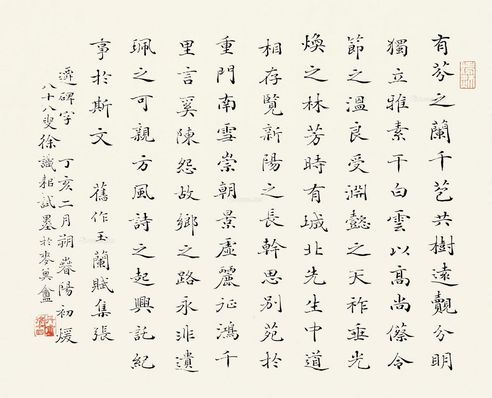 有芬之蘭千芭共樹遠觀分明
獨立雅素干白雲以高尚傺令
節之溫良受淵懿之天祚垂光
煥之林芳時有城北先生中道
相存覽新陽之長幹思別苑於
重門南雪崇朝景虛麗征鴻千
里言奚陳怨故鄉之路永非遺
珮之可親方風詩之起興託紀
事於斯文 舊作玉蘭賦集張
遷碑字 丁亥二月朔春陽初煖
八十八叟徐識耜試墨於麥盦